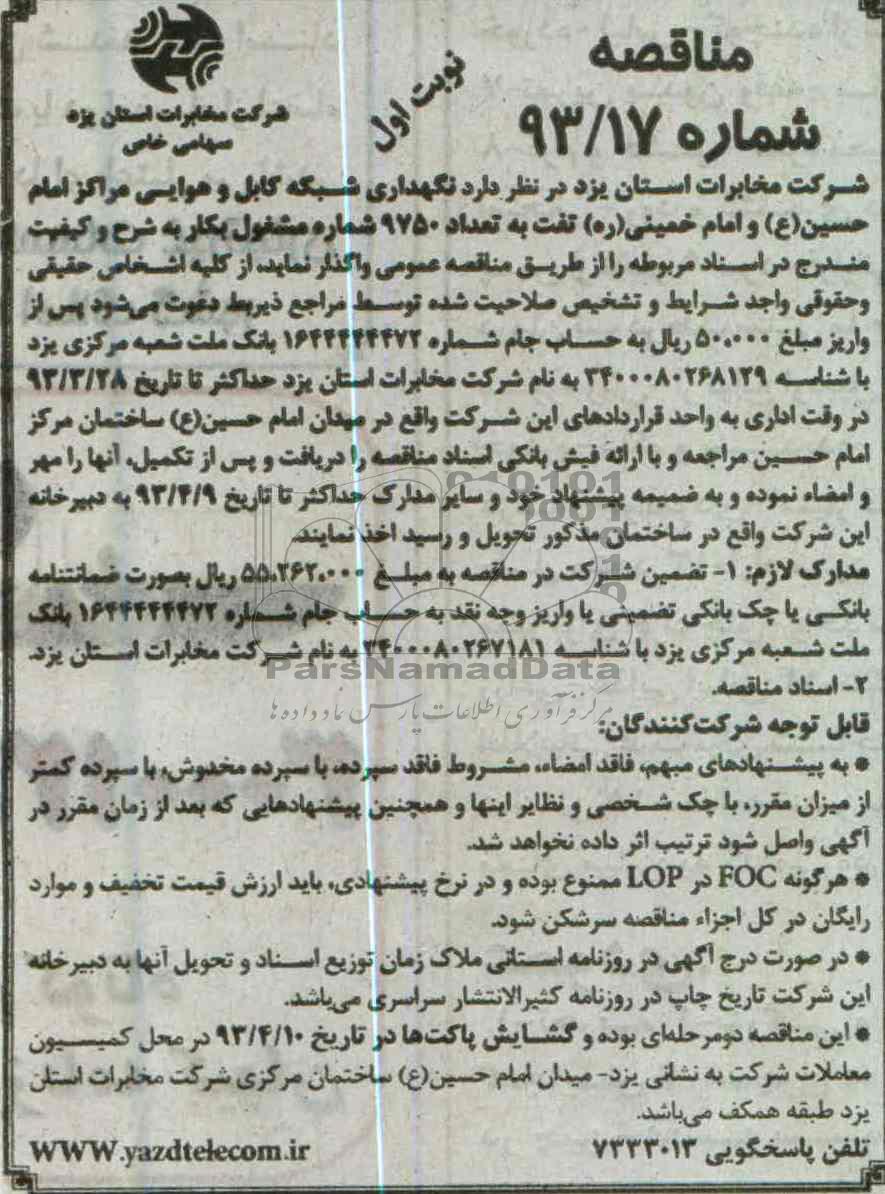 مناقصه
شماره ۹۳/۱۷
نوبت اول
شرکت مخابرات استان یزد
سهامی خاص
شرکت مخابرات استان یزد در نظر دارد نگهداری شبکه کابل و هوایی مراکز امام
حسین(ع) و امام خمینی(ره) تفت به تعداد ۹۷۵۰ شماره مشغول بکار به شرح و کیفیت
مندرج در اسناد مربوطه را از طریق مناقصه عمومی واگذار نماید، از کلیه اشخاص حقیقی
وحقوقی واجد شرایط و تشخیص صلاحیت شده توسط مراجع ذیربط دعوت می‌شود پس از
واریز مبلغ ۵۰،۰۰۰ ریال به حساب جام شماره ۱۶۴۴۴۴۴۴۷۲ بانک ملت شعبه مرکزی یزد
با شناسه ۳۴۰۰۰۸۰۲۶۸۱۲۹ به نام شرکت مخابرات استان یزد حداکثر تا تاریخ ۹۳/۳/۲۸
در وقت اداری به واحد قراردادهای این شرکت واقع در میدان امام حسین(ع) ساختمان مرکز
امام حسین مراجعه و با ارائه فیش بانکی اسناد مناقصه را دریافت و پس از تکمیل، آنها را مهر
و امضاء نموده و به ضمیمه پیشنهاد خود و سایر مدارک حداکثر تا تاریخ ۹۳/۴/۹ به دبیرخانه
این شرکت واقع در ساختمان مذکور تحویل و رسید اخذ نمایند.
مدارک لازم: ۱- تضمین شرکت در مناقصه به مبلغ ۵۵،۲۶۲،۰۰۰ ریال بصورت ضمانتنامه
بانکی یا چک بانکی تضمینی یا واریز وجه نقد به حساب جام شماره ۱۶۴۴۴۴۴۴۷۲ بانک
ملت شعبه مرکزی یزد با شناسه ۳۴۰۰۰۸۰۲۶۷۱۸۱ به نام شرکت مخابرات استان یزد.
ParsNamadData
۲- اسناد مناقصه.
مرکز فرآوری اطلاعات پارس نماد داده ها
قابل توجه شرکت‌کنندگان:
* به پیشنهادهای مبهم، فاقد امضاء، مشروط فاقد سپرده، با سپرده مخدوش، با سپرده کمتر
از میزان مقرر، با چک شخصی و نظایر اینها و همچنین پیشنهادهایی که بعد از زمان مقرر در
آگهی واصل شود ترتیب اثر داده نخواهد شد.
* هرگونه FOC در LOP ممنوع بوده و در نرخ پیشنهادی، باید ارزش قیمت تخفیف و موارد
رایگان در کل اجزاء مناقصه سرشکن شود.
* در صورت درج آگهی در روزنامه استانی ملاک زمان توزیع اسناد و تحویل آنها به دبیرخانه
این شرکت تاریخ چاپ در روزنامه کثیرالانتشار سراسری می‌باشد.
* این مناقصه دومرحله‌ای بوده و گشایش پاکت‌ها در تاریخ ۹۳/۴/۱۰ در محل کمیسیون
معاملات شرکت به نشانی یزد- میدان امام حسین(ع) ساختمان مرکزی شرکت مخابرات استان
یزد طبقه همکف می‌باشد.
تلفن پاسخگویی ۷۲۳۳۰۱۳
WWW.yazdtelecom.ir